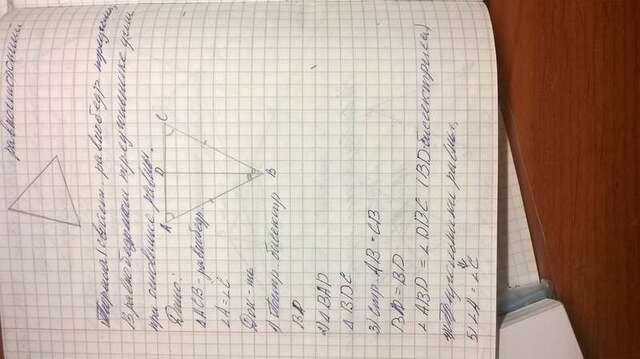 равносторонний
Теорема 1: свойст. равнобедр треугол.
В равнобедренном треугольнике углы
при основании равны.
Дано:
△ACB - равнобедр
∠A = ∠C
Док-ть
A D C B
1) биссектр
BD
2) △BAD
△BDC
3) стор AB = CB
BD = BD
∠ABD = ∠DBC (BD биссектриса)
треугольники равны,
5) ∠A = ∠C